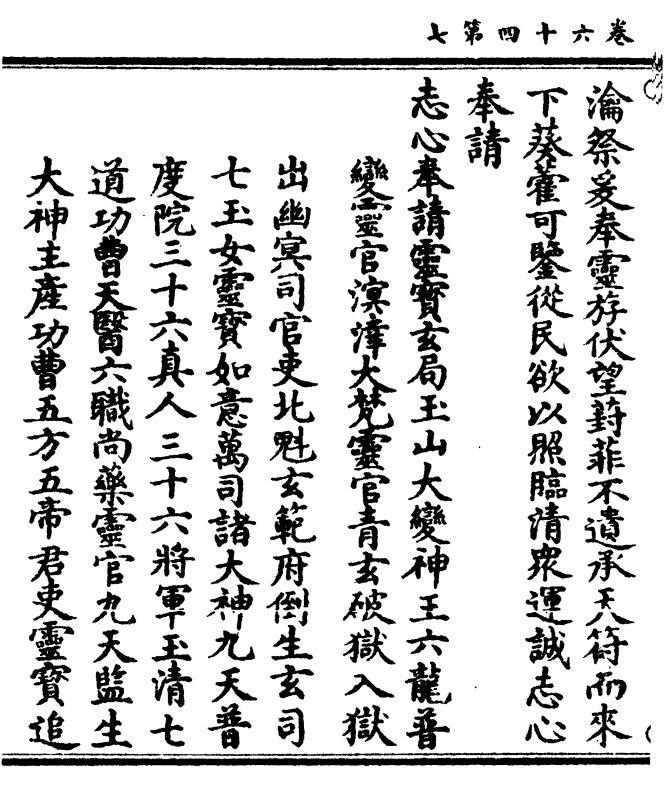 卷六十四第七
瀹祭爰奉靈斿伏望葑菲不遺承天符而來
下葵藿可鑒從民欲以照臨清衆運誠志心
奉請
志心奉請靈寶玄局玉山大變神王六龍普
變靈官溟涬大梵靈官青玄破獄入獄
出幽冥司官吏北魁玄範府倒生玄司
七玉女靈寶如意萬司諸大神九天普
度院三十六真人三十六將軍玉清七
道功曹天醫六職尚藥靈官九天監生
大神主產功曹五方五帝君吏靈寶追